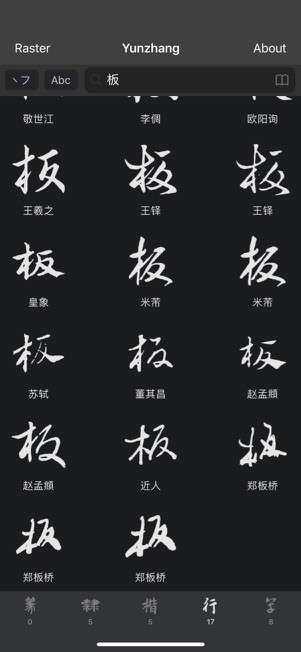 Raster Yunzhang About
ヽフ Abc 板
敬世江 李倜 欧阳询
板 板 板
王羲之 王铎 王铎
板 板 板
皇象 米芾 米芾
板 板 板
苏轼 董其昌 赵孟頫
板 板 板
赵孟頫 近人 郑板桥
板 板
郑板桥 郑板桥
篆 隶 楷 行 草
0 5 5 17 8